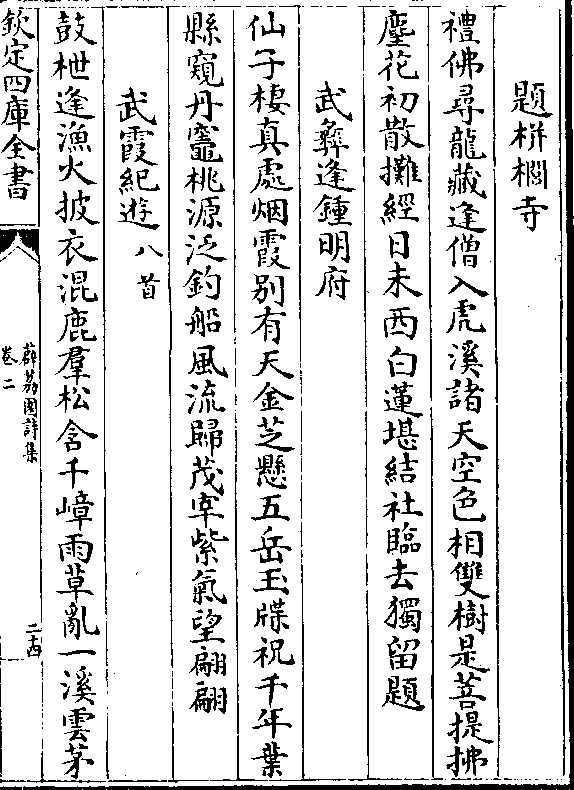 題栟櫚寺
禮佛尋龍藏逢僧入虎溪諸天空色相雙樹是菩提拂
麈花初散攤經日未西白蓮堪結社臨去獨留題
武彞逢鍾明府
仙子棲真處烟霞别有天金芝懸五岳玉牒祝千年葉
縣窺丹竈桃源泛釣船風流歸茂宰紫氣望翩翩
武霞紀遊八首
鼓枻逢漁火披衣混鹿羣松含千嶂雨草亂一溪雲茅
欽定四庫全書
薜荔園詩集
卷二
二十四